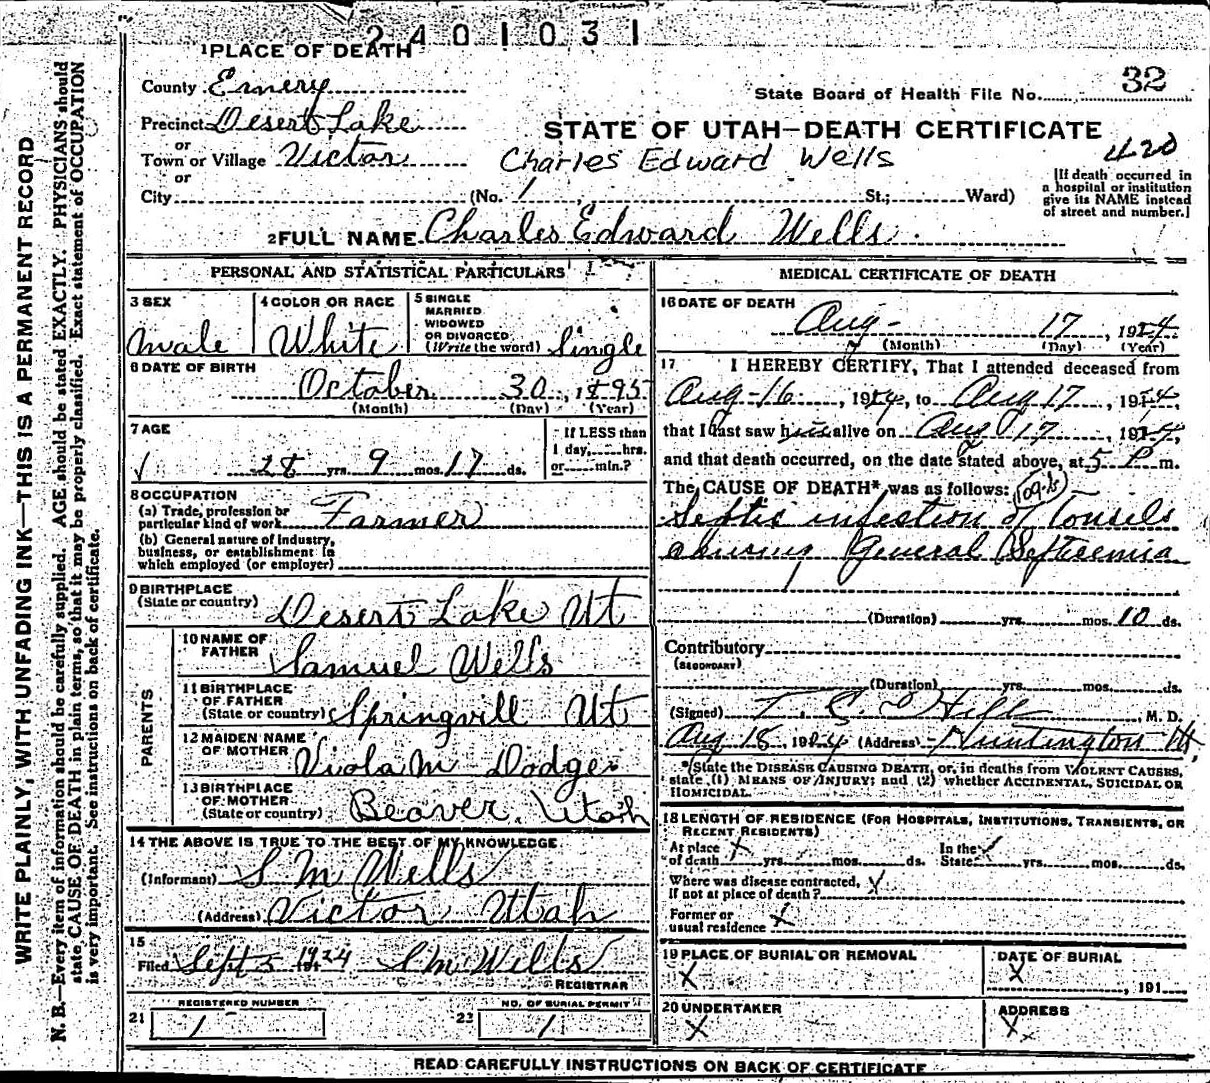 2401031
1 PLACE OF DEATH
County Emery
State Board of Health File No. 32
Precinct Desert Lake
STATE OF UTAH—DEATH CERTIFICATE
or
Town or Village Victor
Charles Edward Wells
420
or
City (No. 1 St.; Ward)
[If death occurred in
a hospital or institution
give its NAME instead
of street and number.]
2 FULL NAME Charles Edward Wells
PERSONAL AND STATISTICAL PARTICULARS
3 SEX
Male
4 COLOR OR RACE
White
5 SINGLE
MARRIED
WIDOWED
OR DIVORCED
(Write the word) Single
6 DATE OF BIRTH
October 30, 1895
(Month) (Day) (Year)
7 AGE
28 yrs. 9 mos. 17 ds.
If LESS than
1 day, hrs.
or min.?
8 OCCUPATION
(a) Trade, profession or
particular kind of work Farmer
(b) General nature of industry,
business, or establishment in
which employed (or employer)
9 BIRTHPLACE
(State or country) Desert Lake Ut
PARENTS
10 NAME OF
FATHER Samuel Wells
11 BIRTHPLACE
OF FATHER
(State or country) Springvill Ut
12 MAIDEN NAME
OF MOTHER Viola M Dodge
13 BIRTHPLACE
OF MOTHER
(State or country) Beaver, Utah
14 THE ABOVE IS TRUE TO THE BEST OF MY KNOWLEDGE
(Informant) S M Wells
(Address) Victor Utah
15
Filed Sept 5 1924 S M Wells
REGISTRAR
REGISTERED NUMBER
21 1
NO. OF BURIAL PERMIT
22 1
MEDICAL CERTIFICATE OF DEATH
16 DATE OF DEATH
Aug- 17, 1924
(Month) (Day) (Year)
17 I HEREBY CERTIFY, That I attended deceased from
Aug-16, 1924, to Aug 17, 1924,
that I last saw him alive on Aug 17, 1924,
and that death occurred, on the date stated above, at 5 P m.
The CAUSE OF DEATH* was as follows:
Septic infection of Tonsels
causing General Septicemia
(Duration) yrs. mos. 10 ds.
Contributory
(SECONDARY)
(Duration) yrs. mos. ds.
(Signed) T. C. Hill, M. D.
Aug 18, 1924 (Address) Huntington Ut,
*State the DISEASE CAUSING DEATH, or, in deaths from VIOLENT CAUSES,
state (1) MEANS OF INJURY; and (2) whether ACCIDENTAL, SUICIDAL OR
HOMICIDAL.
18 LENGTH OF RESIDENCE (FOR HOSPITALS, INSTITUTIONS, TRANSIENTS, OR
RECENT RESIDENTS)
At place
of death X yrs. mos. ds.
In the
State yrs. mos. ds.
Where was disease contracted,
If not at place of death? X
Former or
usual residence X
19 PLACE OF BURIAL OR REMOVAL
X
DATE OF BURIAL
X , 191
20 UNDERTAKER
X
ADDRESS
X
READ CAREFULLY INSTRUCTIONS ON BACK OF CERTIFICATE
WRITE PLAINLY, WITH UNFADING INK—THIS IS A PERMANENT RECORD
N. B.—Every item of information should be carefully supplied. AGE should be stated EXACTLY. PHYSICIANS should
state CAUSE OF DEATH in plain terms, so that it may be properly classified. Exact statement of OCCUPATION
is very important. See instructions on back of certificate.